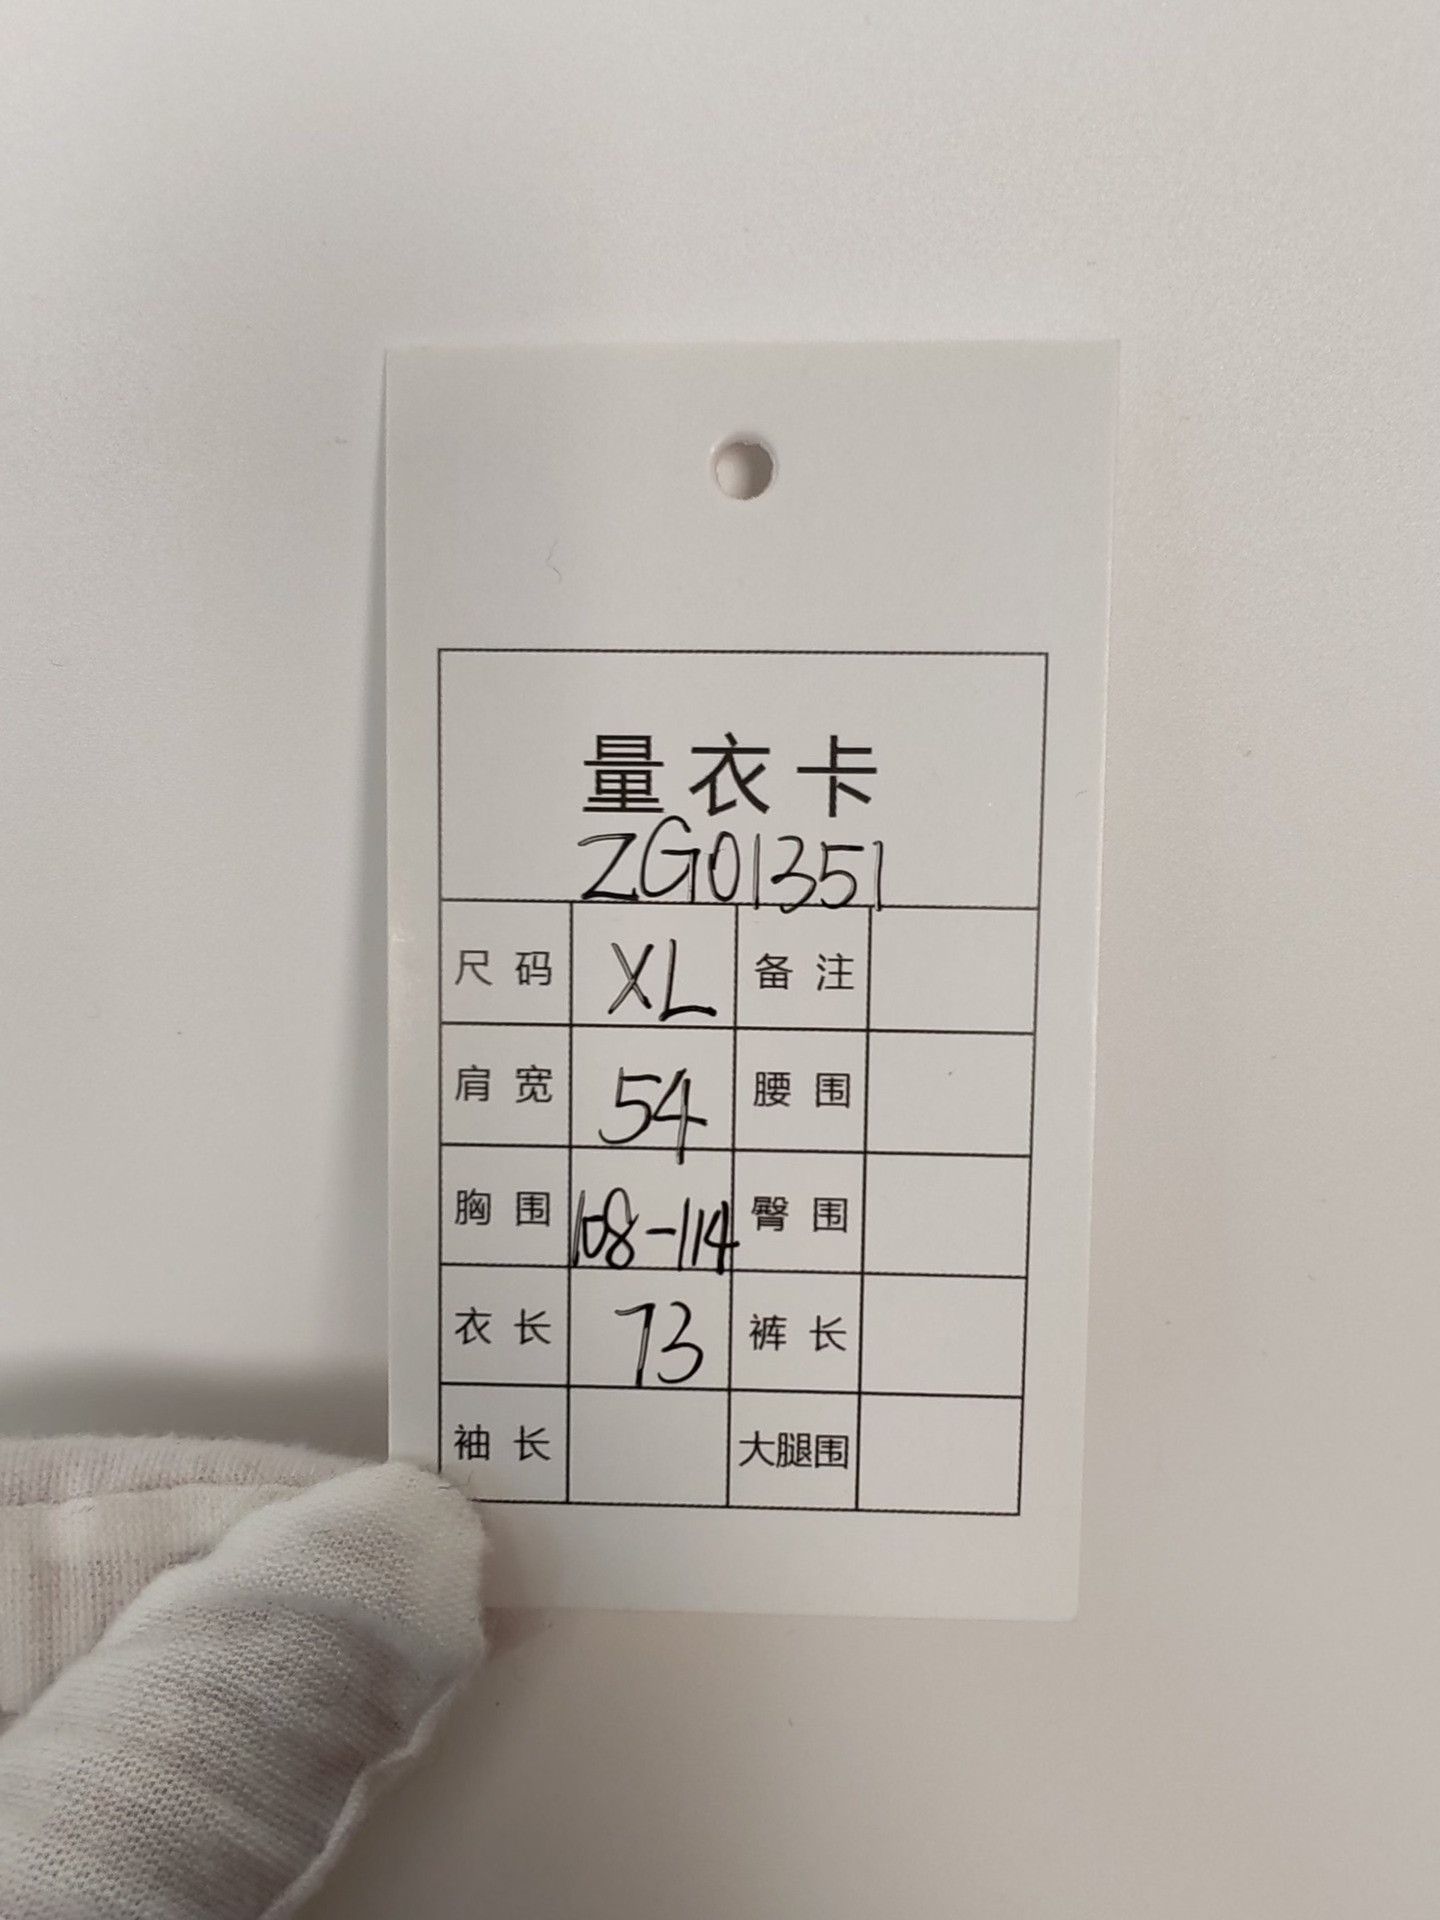 量衣卡
ZG01351
尺码 XL 备注
肩宽 54 腰围
胸围 108-114 臀围
衣长 73 裤长
袖长 大腿围